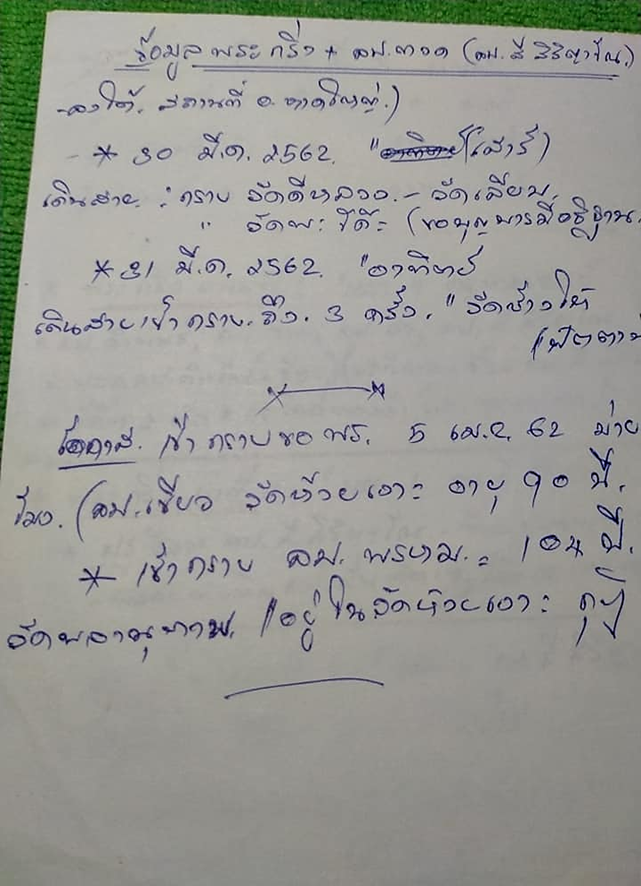 ข้อมูล พระกริ่ง * ลป.ทวด (ลป. สี สิริญาโณ.)
-ลงใต้. สถานที่ อ. หาดใหญ่.)
- * 30 มี.ค. 2562. "(เสาร์)
เดินสาย : กราบ วัดดีหลวง. - วัดเลียบ.
" วัดพะโค๊ะ (ขอบุญบารมีอธิฐาน
* 31 มี.ค. 2562. "อาทิตย์
เดินสาย เข้า กราบ. ถึง. 3 ครั้ง. " วัดช้างให้
โอกาส. เข้า กราบ ขอ พร. 5 เม.ย. 62 บ่าย
โมง. (ลป.เขียว วัดห้วยเงาะ อายุ 90 ปี.
* เข้า กราบ ลป. พรหม. = 104 ปี.
วัดพลานุภาพ. "อยู่ ในวัดห้วยเงาะ